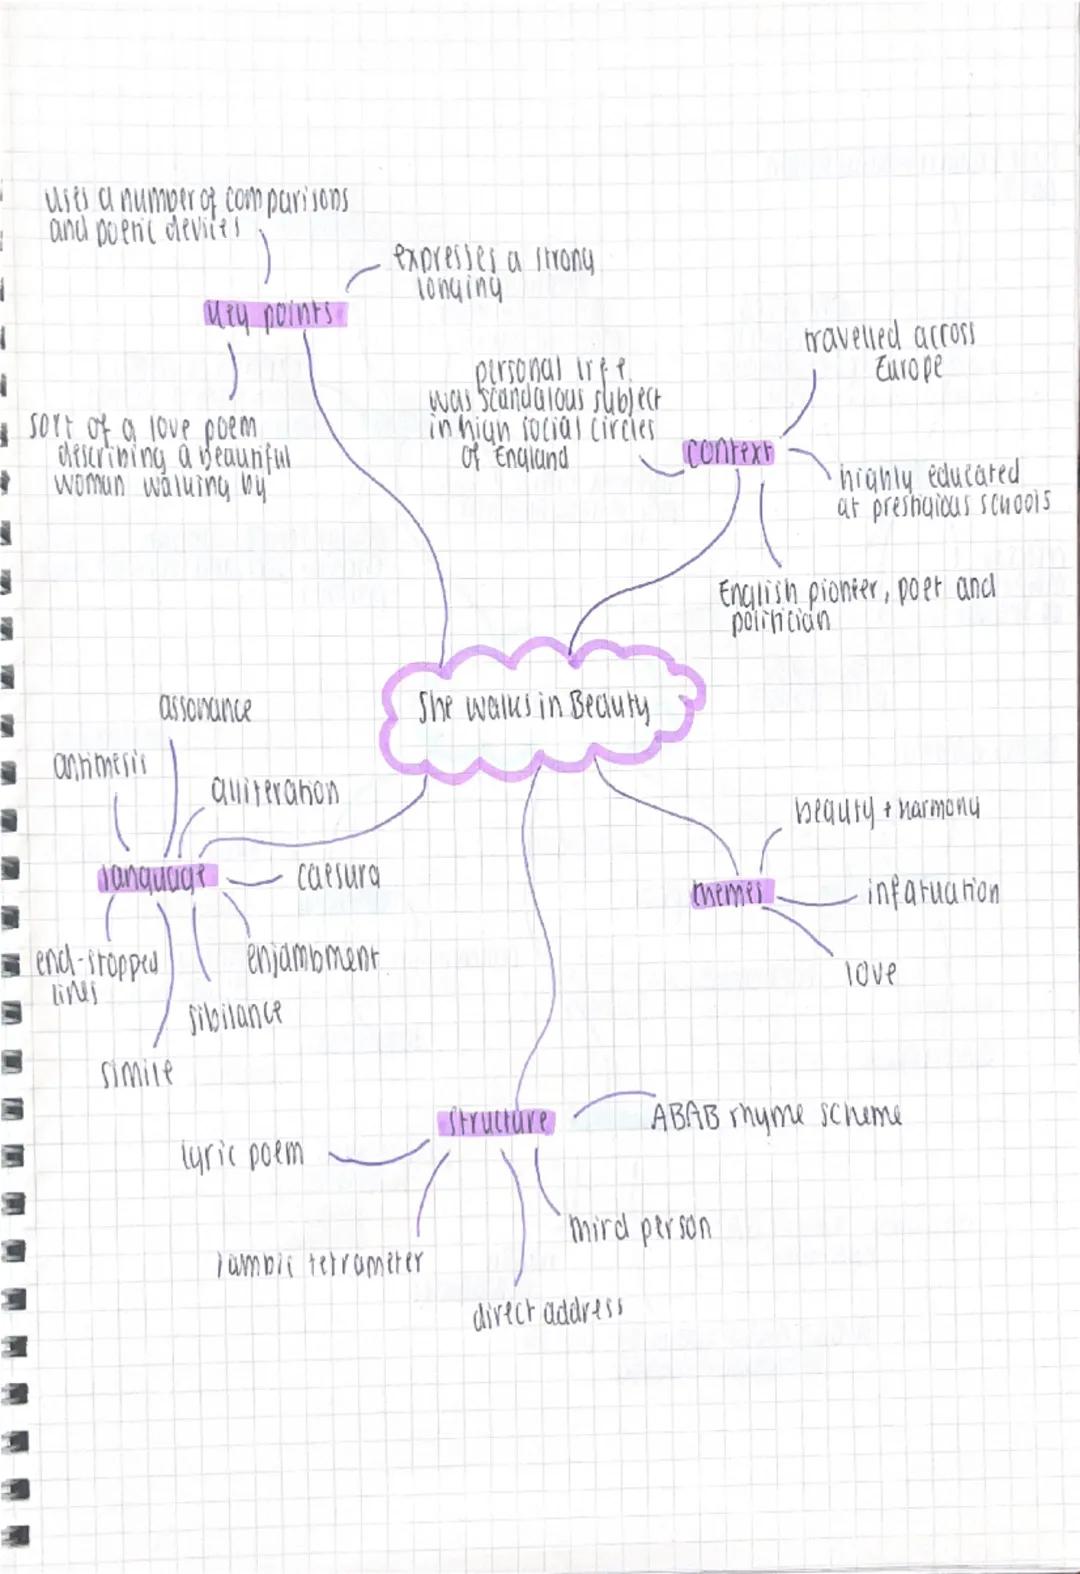 uses a number of comparisons
and poetic devices
expresses a strong
longing
key points
sort of a love poem
describing a beautiful
woman walking by
travelled across
Europe
personal life
was scandalous subject
in high social circles
of England
context
highly educated
at prestigious schools
English pioneer, poet and
politician
She walks in Beauty
assonance
antithesis
alliteration
language
caesura
end-stopped
lines
enjambment
sibilance
simile
beauty + harmony
themes
infatuation
love
structure
ABAB rhyme scheme
lyric poem
third person
iambic tetrameter
direct address